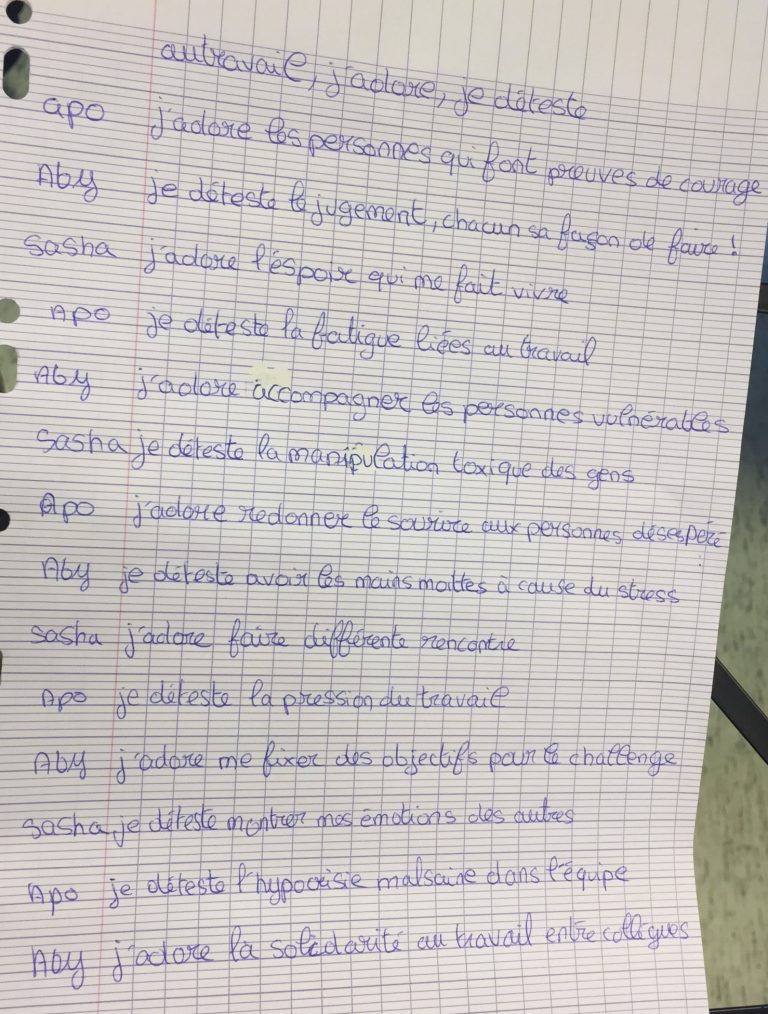 autravail, j'adore, je déteste
apo j'adore les personnes qui font preuves de courage
Aby je déteste le jugement, chacun sa façon de faire !
Sasha j'adore l'éspoir qui me fait vivre
Apo je déteste la fatigue liées au travail
Aby j'adore accompagner les personnes vulnérables
Sasha je déteste la manipulation toxique des gens
Apo j'adore redonner le sourire aux personnes désespéré
Aby je déteste avoir les mains moites à cause du stress
Sasha j'adore faire différente rencontre
Apo je déteste la pression du travail
Aby j'adore me fixer des objectifs pour le challenge
Sasha je déteste montrer mes émotions des autres
Apo je déteste l'hypocrisie malsaine dans l'équipe
Aby j'adore la solidarité au travail entre collègues